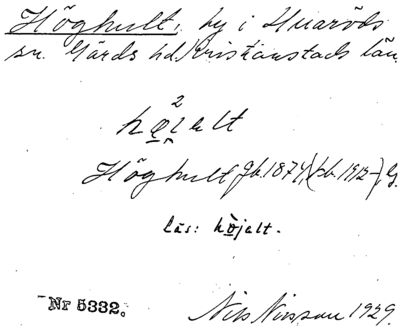 Höghult, by i Huaröds
sn. Gärds hd. Kristianstads län.
2
Höghult jb. 1874, kb. 1912-, G.
läs: hòjelt.
Nr 5332.
Nils Nilsson 1929.